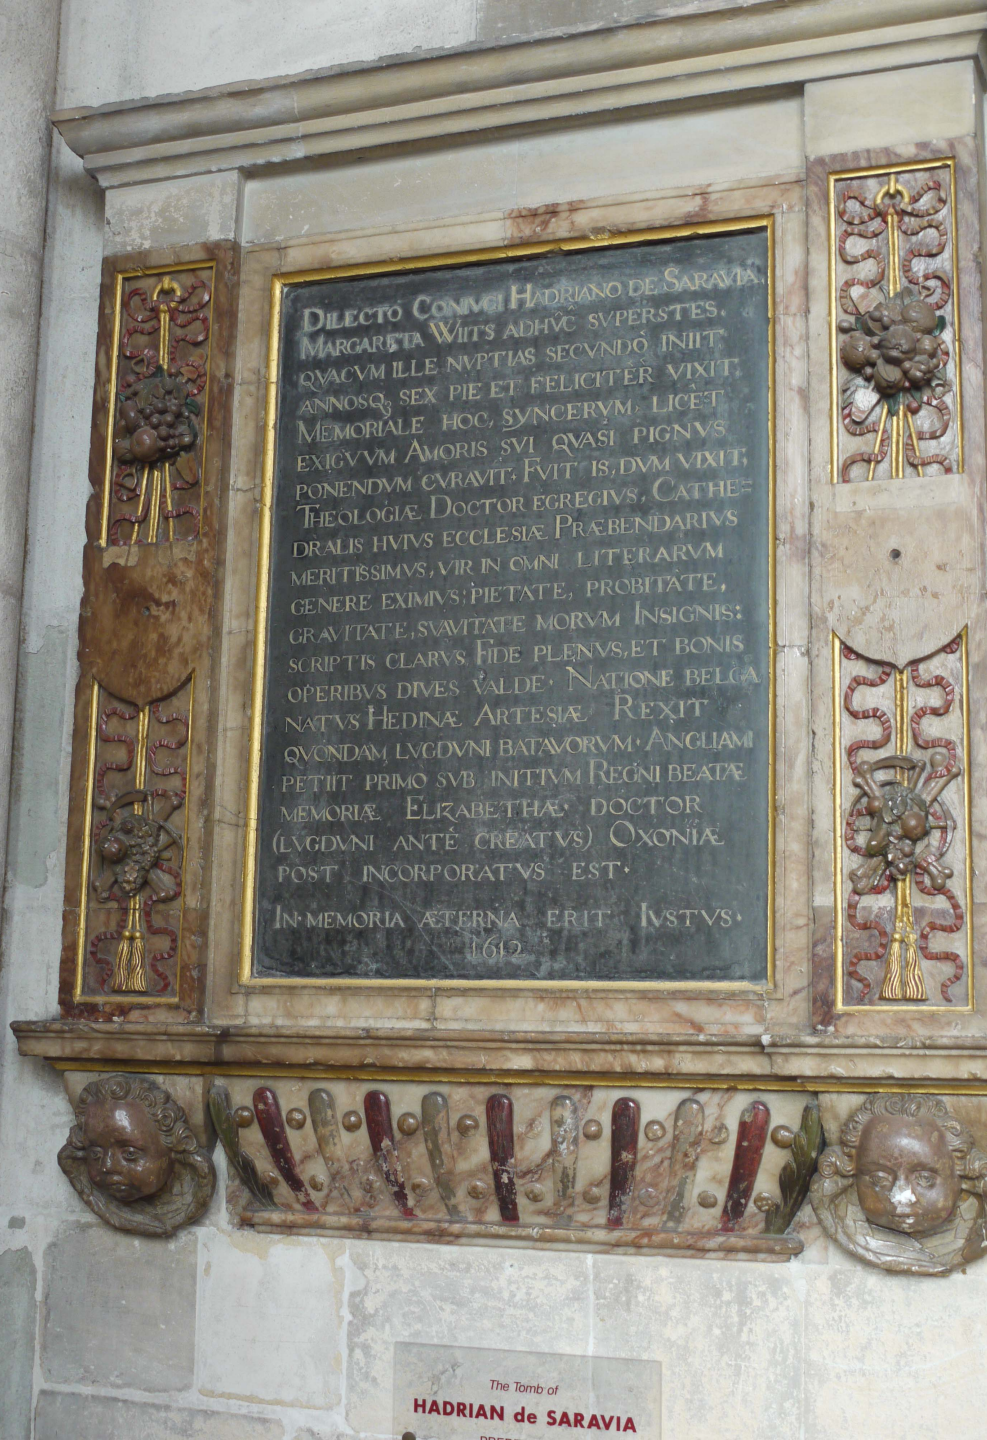 DILECTO CONIVGI HADRIANO DE SARAVIA
MARGARETA WIITS ADHV̂C SVPERSTES.
QVACVM ILLE NVPTIAS SECVNDÒ INIIT
ANNOSQ₃ SEX PIE ET FELICITER VIXIT,
MEMORIALE HOC, SYNCERVM, LICÈT
EXIGVVM AMORIS SVI QVASI PIGNVS
PONENDVM CVRAVIT. FVIT IS, DVM VIXIT,
THEOLOGIÆ DOCTOR EGREGIVS, CATHE=
DRALIS HVIVS ECCLESIÆ PRÆBENDARIVS
MERITISSIMVS, VIR IN OMNI LITERARVM
GENERE EXIMIVS; PIETATE, PROBITATE,
GRAVITATE, SVAVITATE MORVM INSIGNIS:
SCRIPTIS CLARVS FIDE PLENVS, ET BONIS
OPERIBVS DIVES VALDE. NATIONE BELGA
NATVS HEDINÆ ARTESIÆ REXIT
QVONDAM LVGDVNI BATAVORVM. ANGLIAM
PETIIT PRIMO SVB INITIVM REGNI BEATÆ
MEMORIÆ ELIZABETHÆ. DOCTOR
(LVGDVNI ANTÉ CREATVS) OXONIÆ
POST INCORPORATVS EST.
IN MEMORIA ÆTERNA ERIT IVSTVS.
1612
The Tomb of
HADRIAN de SARAVIA